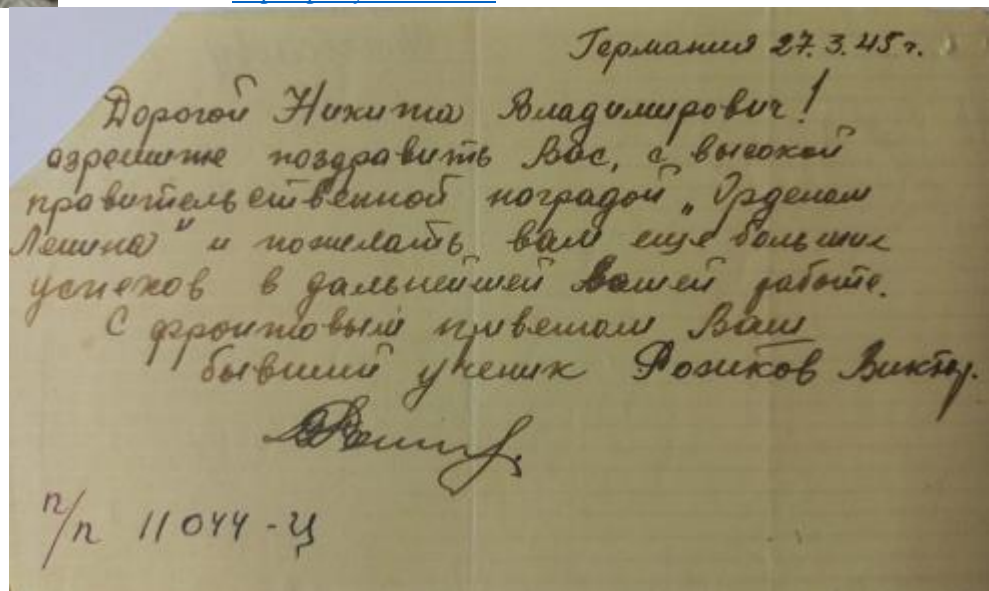 Германия 27.3.45 г.
Дорогой Никита Владимирович!
азрешите поздравить Вас, с высокой
правительственной наградой „Орденом
Ленина" и пожелать вам еще больших
успехов в дальнейшей вашей работе.
С фронтовым приветом Ваш
бывший ученик Розиков Виктор.
п/п 11044-Ц